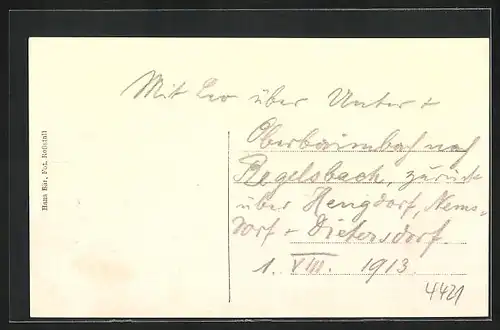 Mit Leo über Unter +
Oberbaimbach nach
Regelsbach, zurück
über Hengdorf, Nems-
dorf + Dietersdorf.
1. VIII. 1913.
4421
Hans Kar, Fot. Roßstall